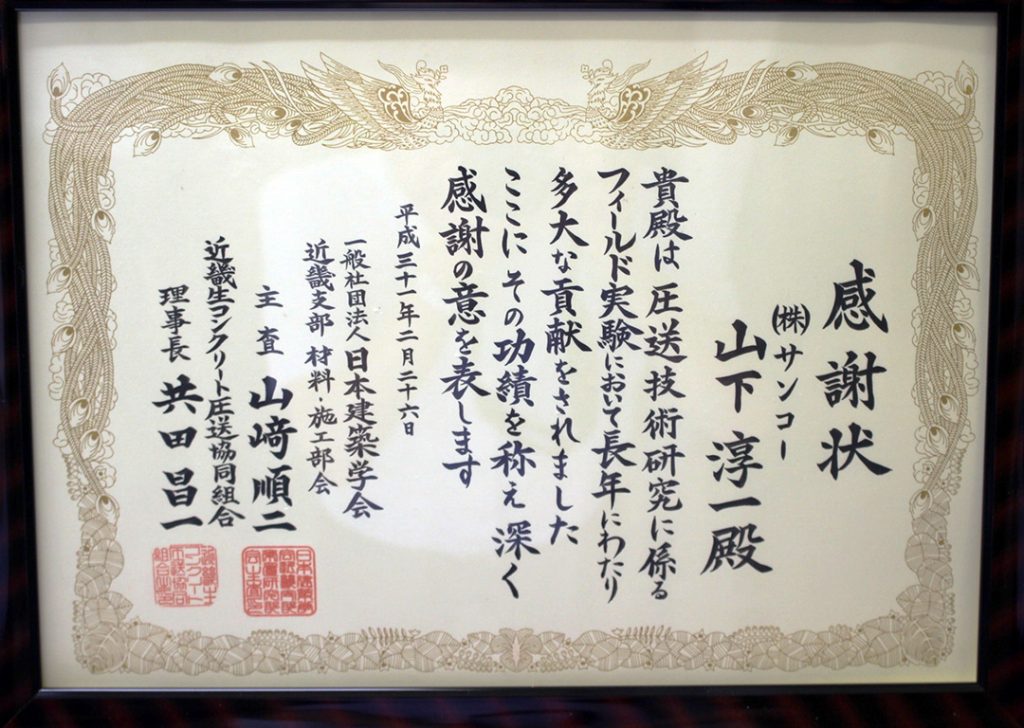 感謝状
(株)サンコー
山下淳一殿
貴殿は圧送技術研究に係る
フィールド実験において長年にわたり
多大な貢献をされました
ここにその功績を称え深く
感謝の意を表します
平成三十一年二月二十六日
一般社団法人日本建築学会
近畿支部 材料・施工部会
主査 山﨑順二
近畿生コンクリート圧送協同組合
理事長 共田昌一